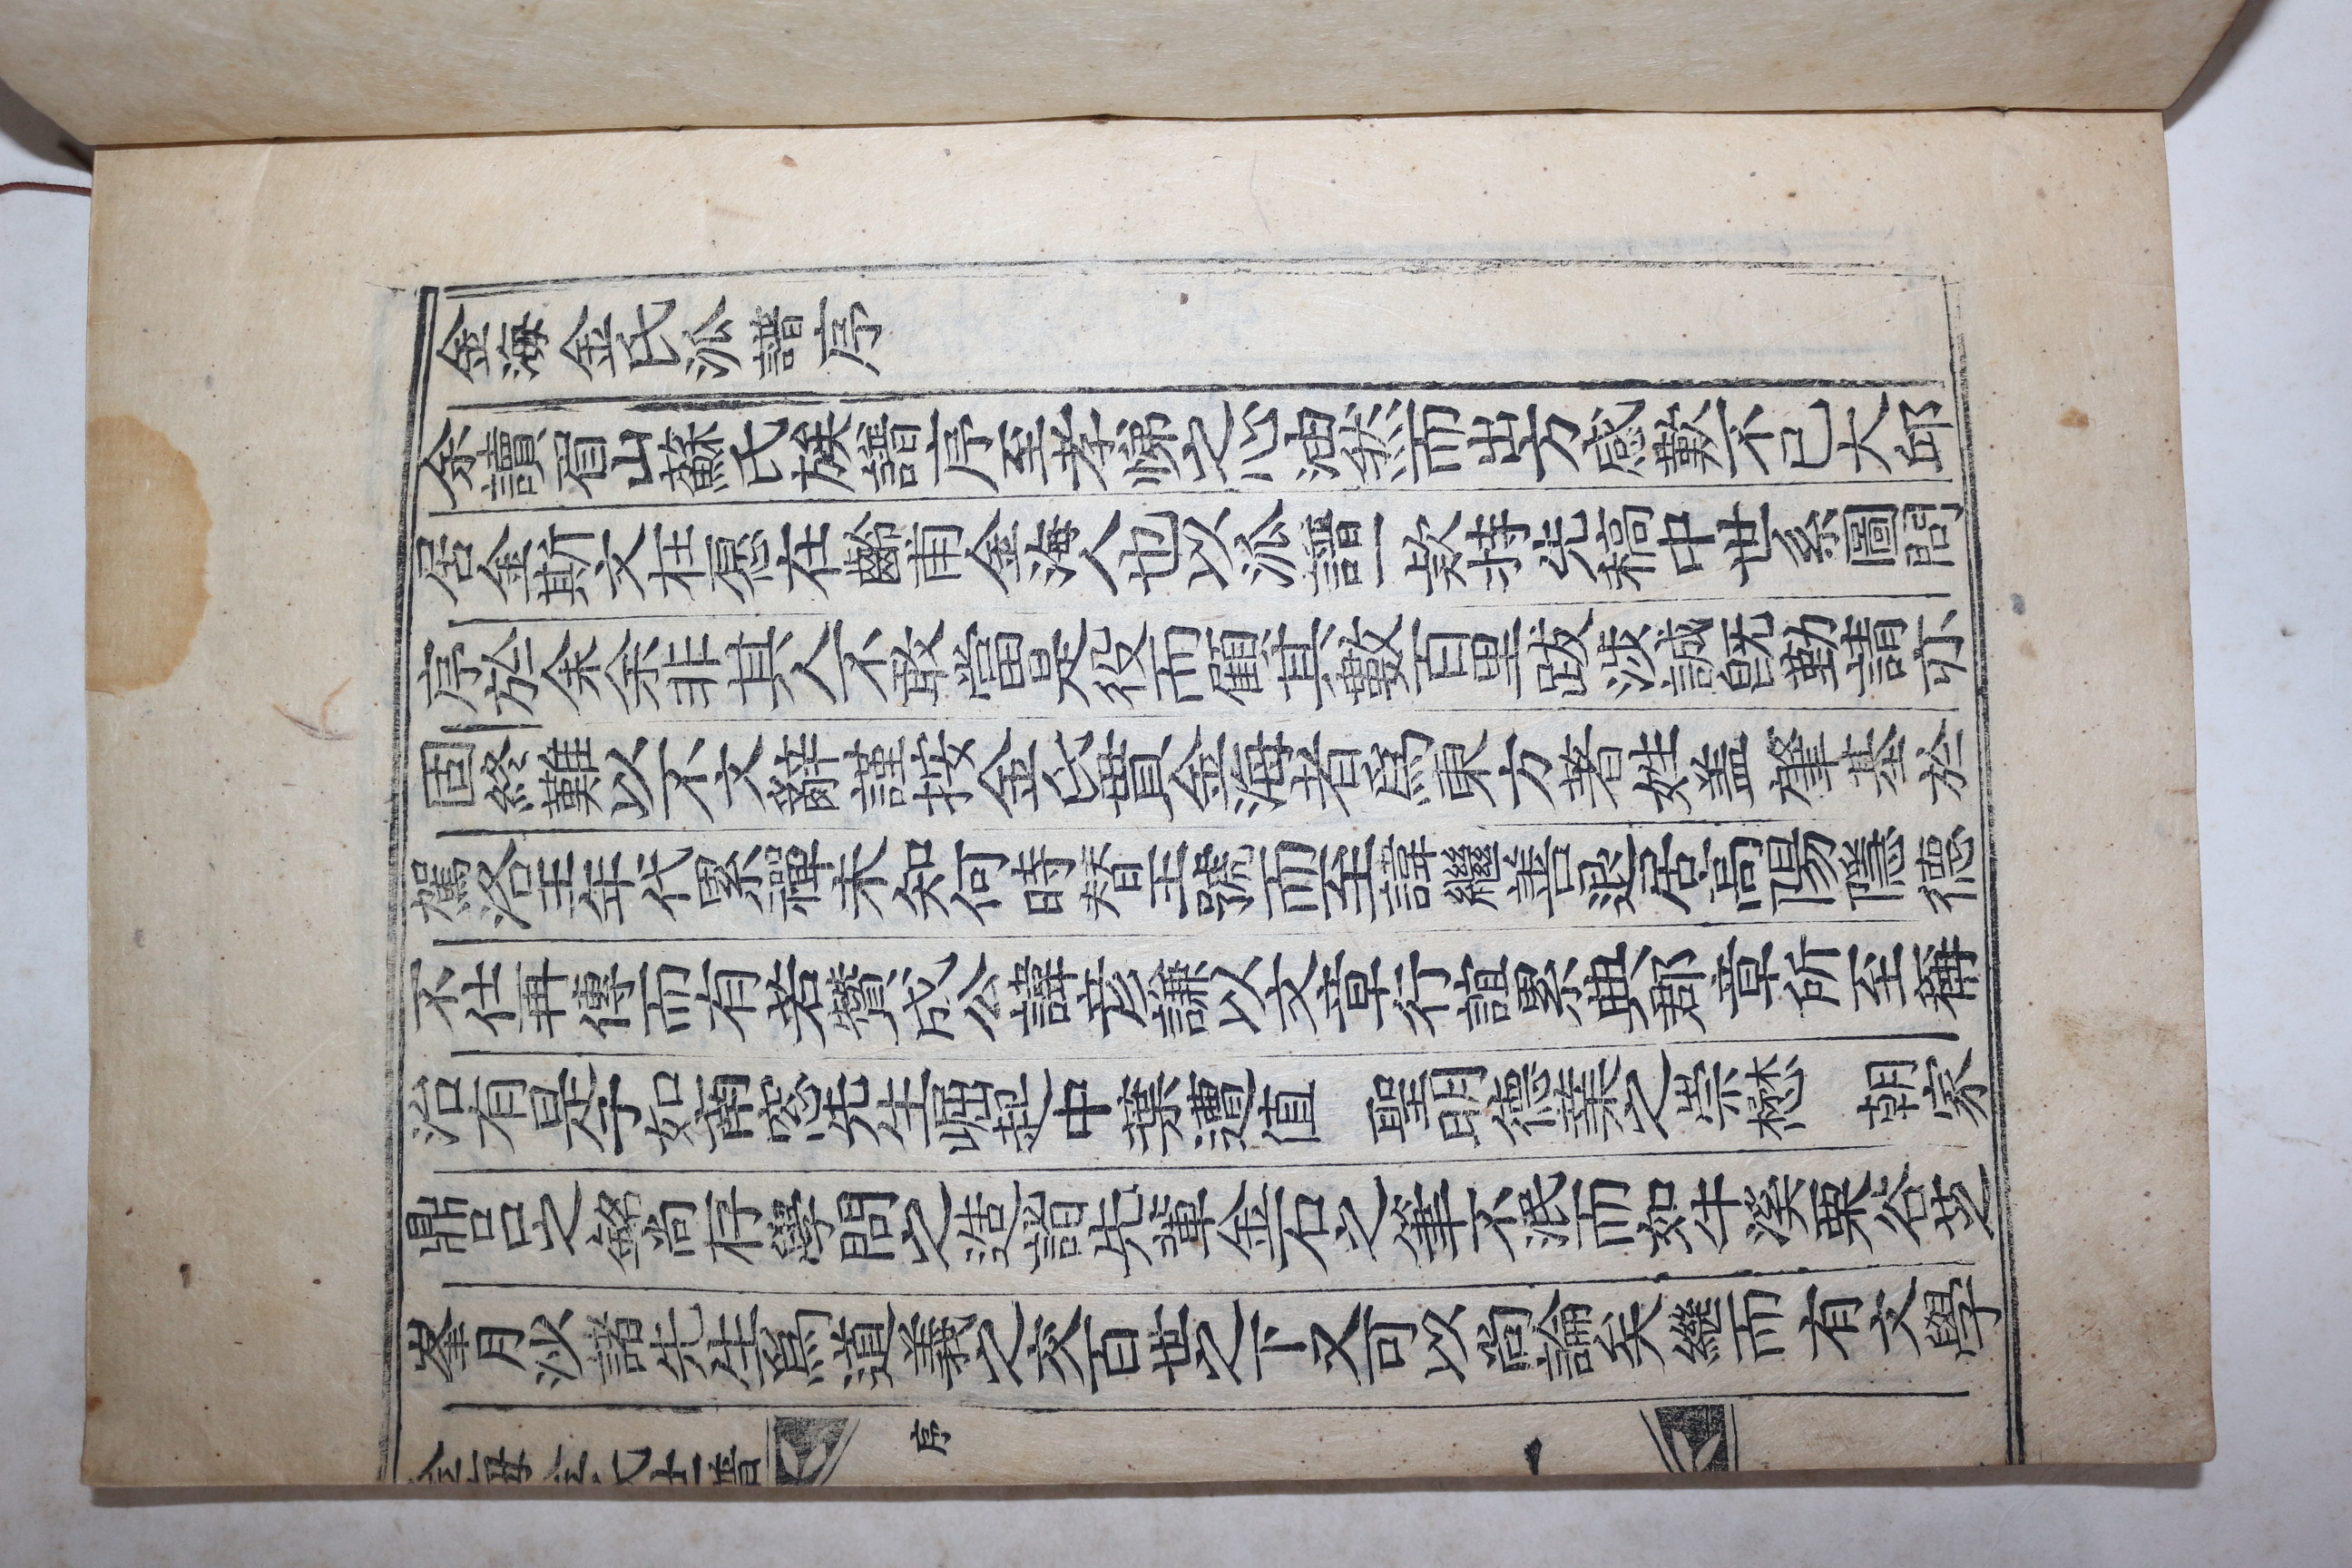 金海金氏派譜序
余讀眉山蘇氏族譜序至孝悌之心油然而出方感歎不已大邱
居金斯文在熙在齡甫金海人也以派譜一款持先稿中世系圖問
序於余余非其人不敢當是役而顧其數百里跋涉誠旣勤請亦
固終難以不文辭謹按金氏貫金海者爲東方著姓盖肇基於
駕洛王年代累禪未知何時替王號而至諱繼善退居高陽隱德
不仕再傳而有若贊成公諱克謙以文章行誼累典郡章所至椿
治有是孕如南窓先生堀起中葉遭值 聖朝德業之崇懋 朝家
鼎呂之銘尚存學問之造詣先輩金石之筆不泯而如牛溪栗谷芝
峯月沙諸先生爲道義之交百世之下又可以尚論矣繼而有文學
序 一